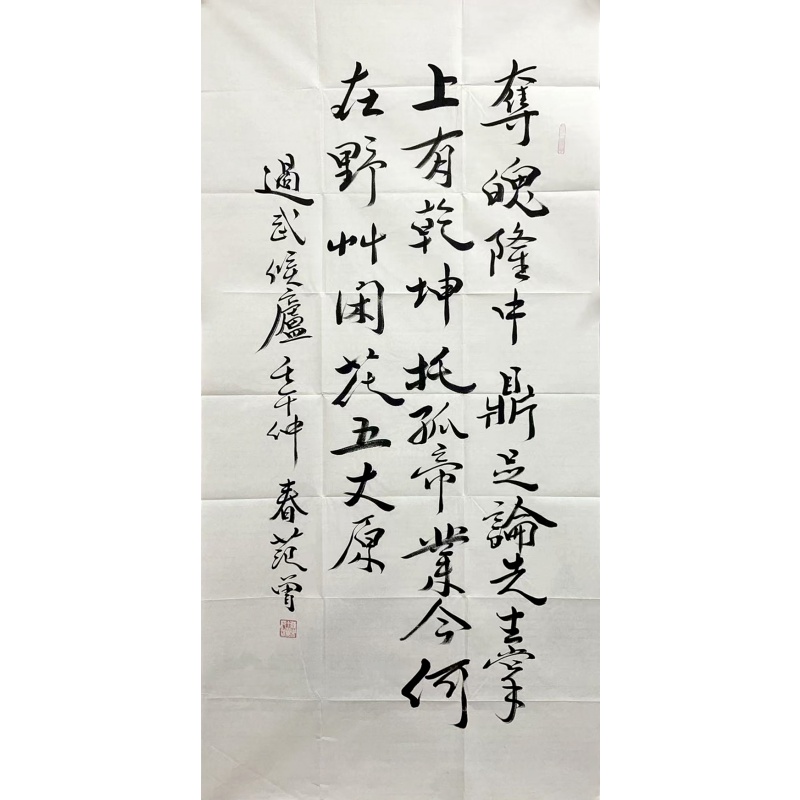 奪魄隆中鼎足論先生掌
上有乾坤托孤帝業今何
在野艸闲花五丈原
過武候廬壬午仲春范曾